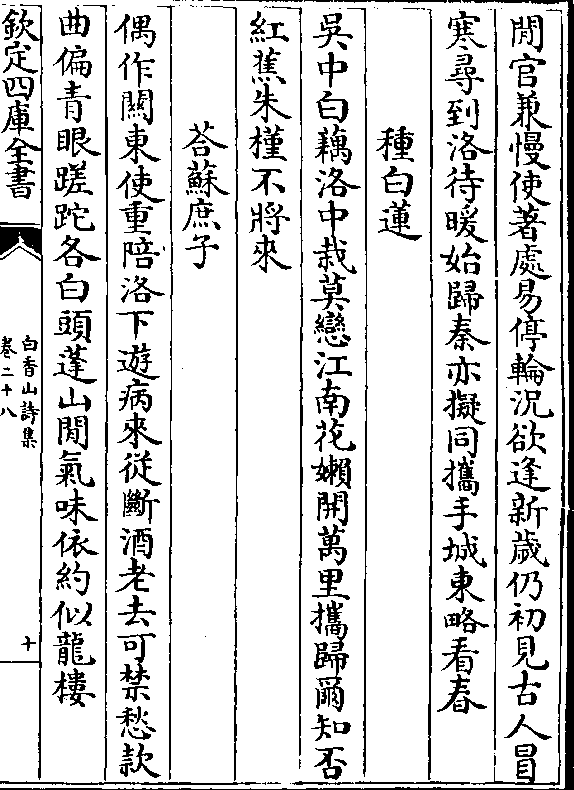 閒官兼慢使著處易停輪況欲逢新歲仍初見古人冒
寒尋到洛待暖始歸秦亦擬同攜手城東略看春
種白蓮
吳中白藕洛中栽莫戀江南花懶開萬里攜歸爾知否
紅蕉朱槿不將來
荅蘇庶子
偶作關東使重陪洛下遊病來從斷酒老去可禁愁款
曲偏青眼蹉跎各白頭蓬山閒氣味依約似龍樓
欽定四庫全書
白香山詩集
卷二十八
十